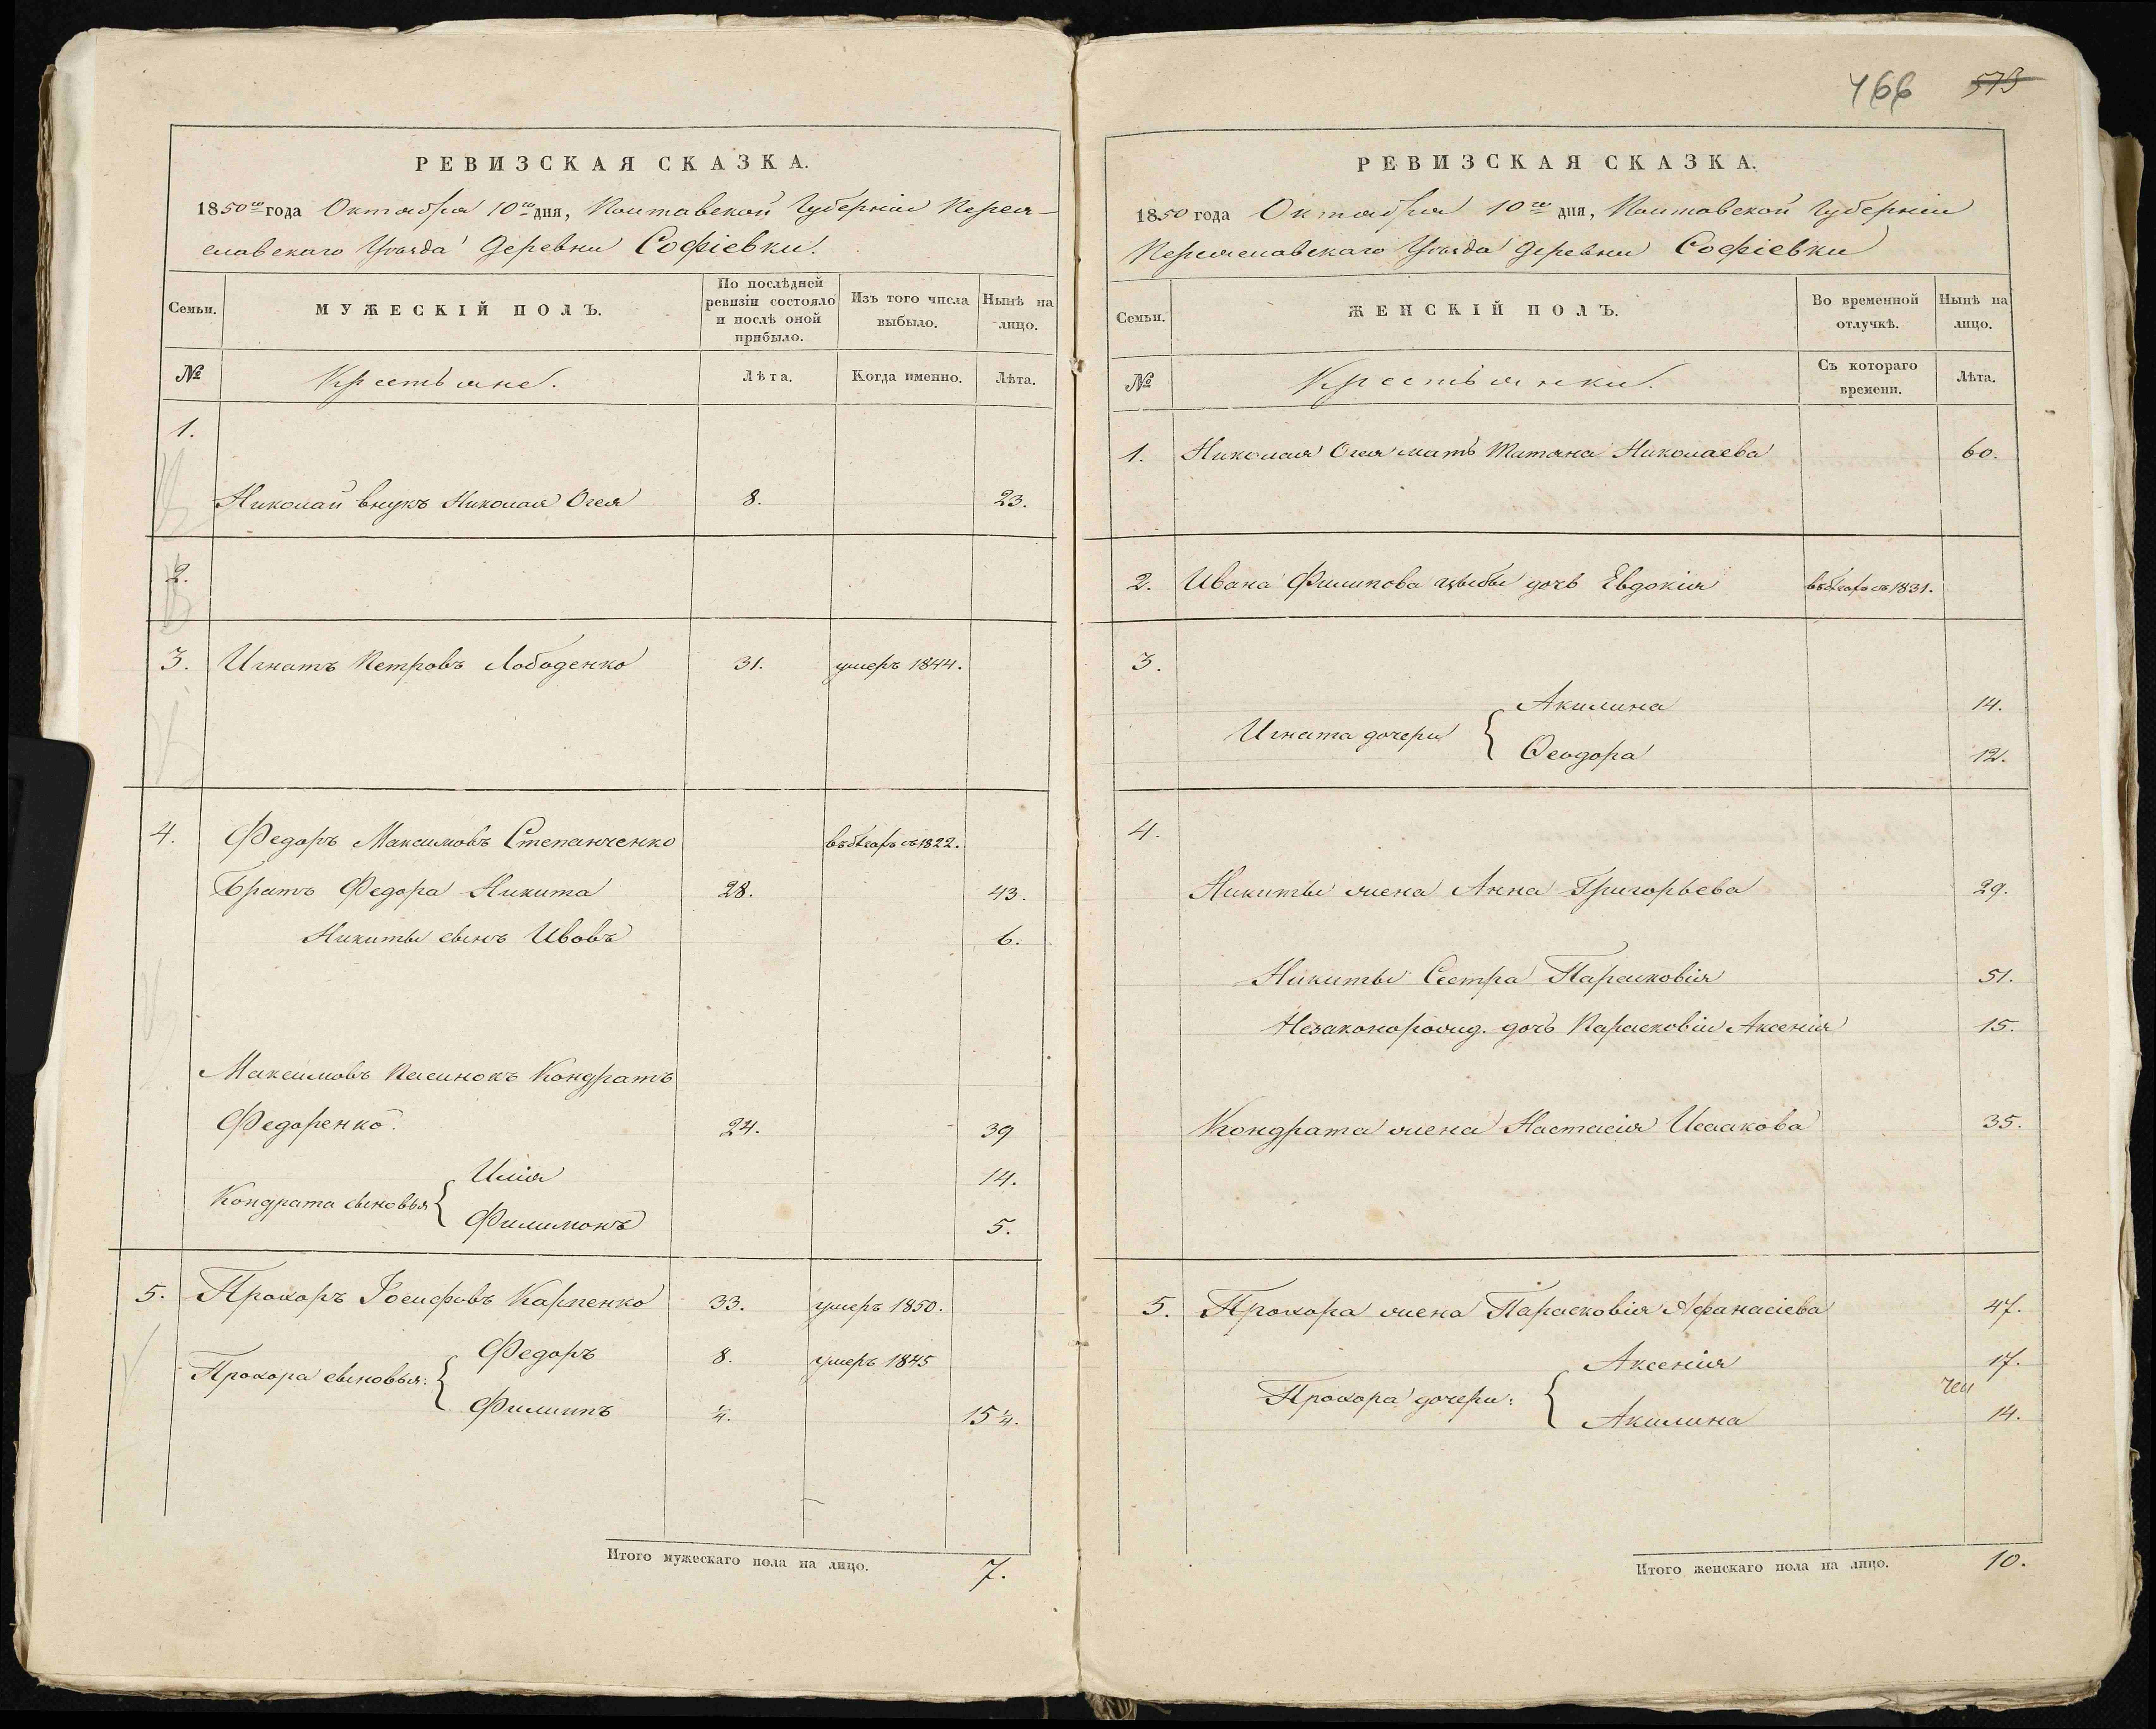 РЕВИЗСКАЯ СКАЗКА.
1850го года Октября 10го дня, Полтавской Губерніи Перея-
славскаго Уѣзда Деревни Софіевки.
Семьи.
МУЖЕСКІЙ ПОЛЪ.
По послѣдней ревизіи состояло и послѣ оной прибыло.
Изъ того числа выбыло.
Нынѣ на лицо.
№
Крестьяне.
Лѣта.
Когда именно.
Лѣта.
1.
Николай внукъ Николая Огея 8. 23.
2.
3. Игнатъ Петровъ Лободенко 31. умеръ 1844.
4. Федоръ Максимовъ Степанченко въ бѣгахъ съ 1822.
Братъ Федора Никита 28. 43.
Никиты сынъ Ивовъ 6.
Максимовъ Пасинокъ Кондратъ
Федоренко. 24. 39
Илія 14.
Кондрата сыновья {
Филимонъ 5.
5. Прохоръ Іосифовъ Карпенко 33. умеръ 1850.
Федоръ 8. умеръ 1845
Прохора сыновья: {
Филиппъ ¼. 15 ¼.
Итого мужескаго пола на лицо. 7.
466 573
РЕВИЗСКАЯ СКАЗКА.
1850 года Октября 10го дня, Полтавской Губерніи
Переяславскаго Уѣзда Деревни Софіевки
Семьи.
ЖЕНСКІЙ ПОЛЪ.
Во временной отлучкѣ.
Нынѣ на лицо.
№
Крестьянки.
Съ котораго времени.
Лѣта.
1. Николая Огея мать Татяна Николаева 60.
2. Ивана Филипова дочь Евдокія въ бѣгахъ съ 1831.
3.
Акилина 14.
Игната дочери {
Ѳеодора 12.
4.
Никиты жена Анна Григорьева 29.
Никиты Сестра Парасковія 51.
Незаконорожд. дочь Парасковіи Аксенія 15.
Кондрата жена Настасія Исаакова 35.
5. Прохора жена Парасковія Афанасіева 47.
Аксенія 17.
Прохора дочери: {
Акилина 14.
Итого женскаго пола на лицо. 10.